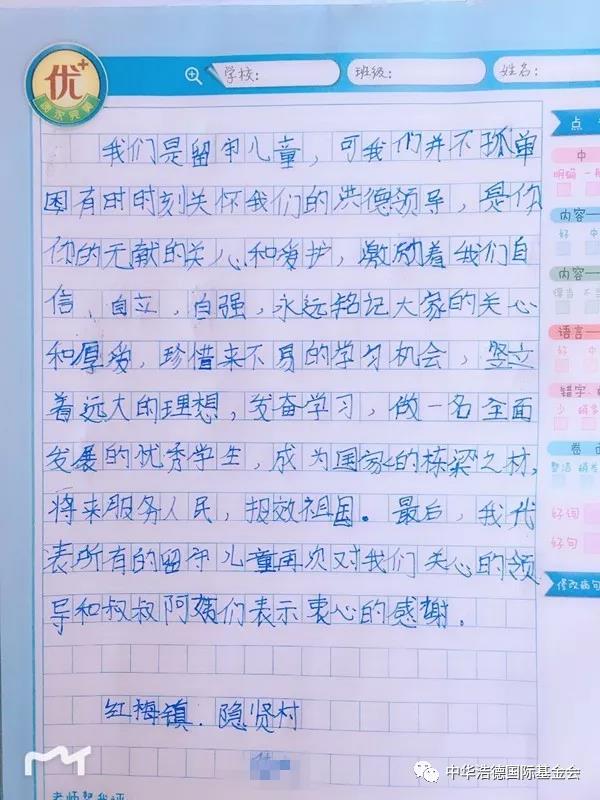 优+
学校：
班级：
姓名：
我们是留守儿童，可我们并不孤单
因有时时刻关怀我们的洪德领导，是你
你的无献的关心和爱护，激励着我们自
信、自立，自强，永远铭记大家的关心
和厚爱，珍惜来不易的学习机会，竖立
着远大的理想，发奋学习，做一名全面
发展的优秀学生，成为国家的栋梁之材，
将来服务人民，报效祖国。最后，我代
表所有的留守儿童再次对我们关心的领
导和叔叔阿姨们表示衷心的感谢。
红梅镇．隐贤村
点
中
明确
内容
好 中
内容
得当 不当
语言
好 中
错字
少
卷面
整洁
好词
好句
修改病句
老师帮我评
中华浩德国际基金会